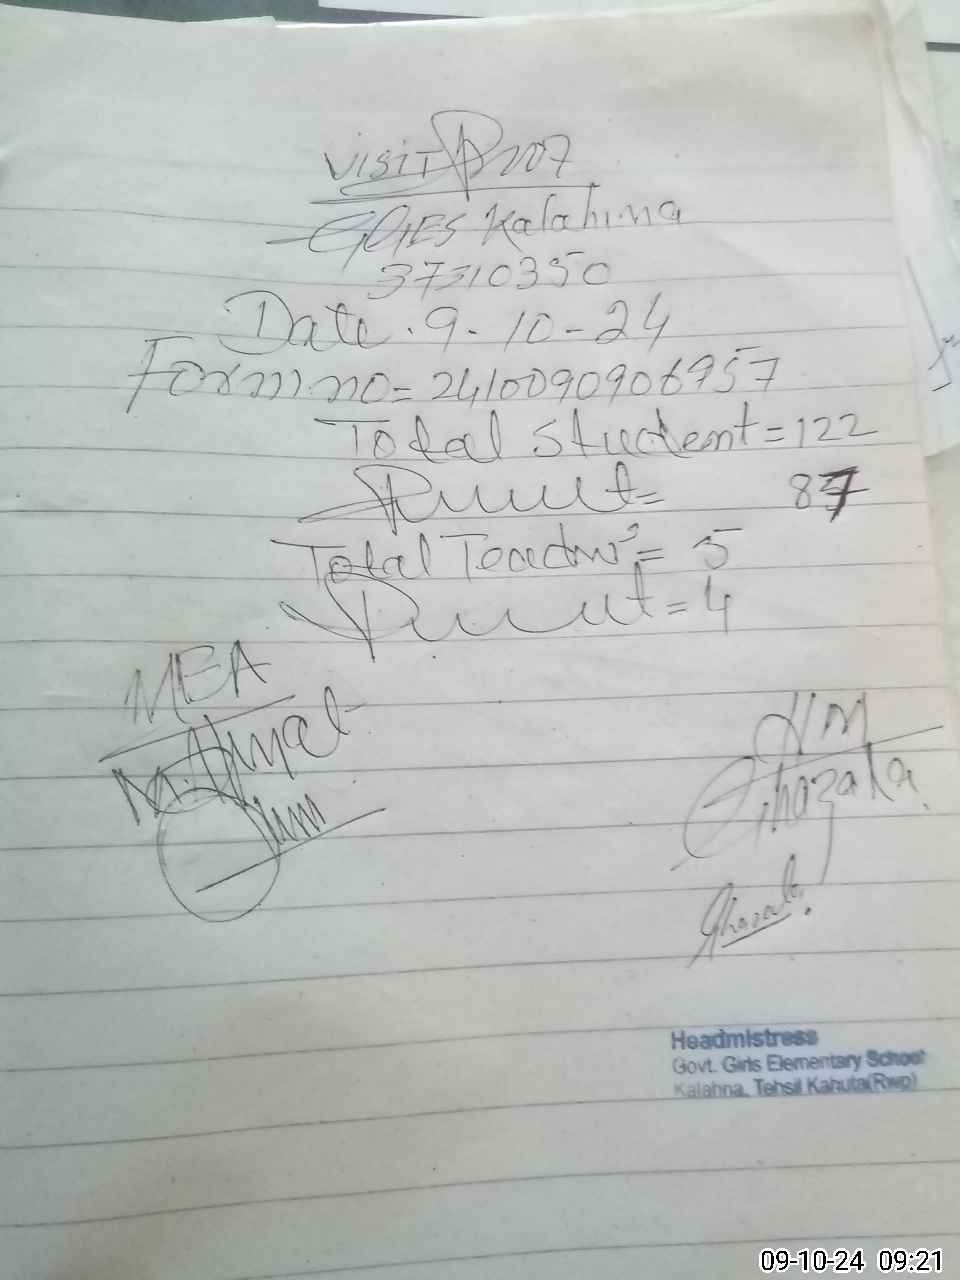 Visit Proof
GGES Kalahina
37310350
Date. 9-10-24
Form no= 2410090906957
Total Student = 122
Present=
Total Teacher's = 5
Present = 4
MEA
HM
Ghazala
Ghazala
Headmistress
Govt. Girls Elementary School
Kalahna, Tehsil Kahuta(Rwp)
09-10-24 09:21